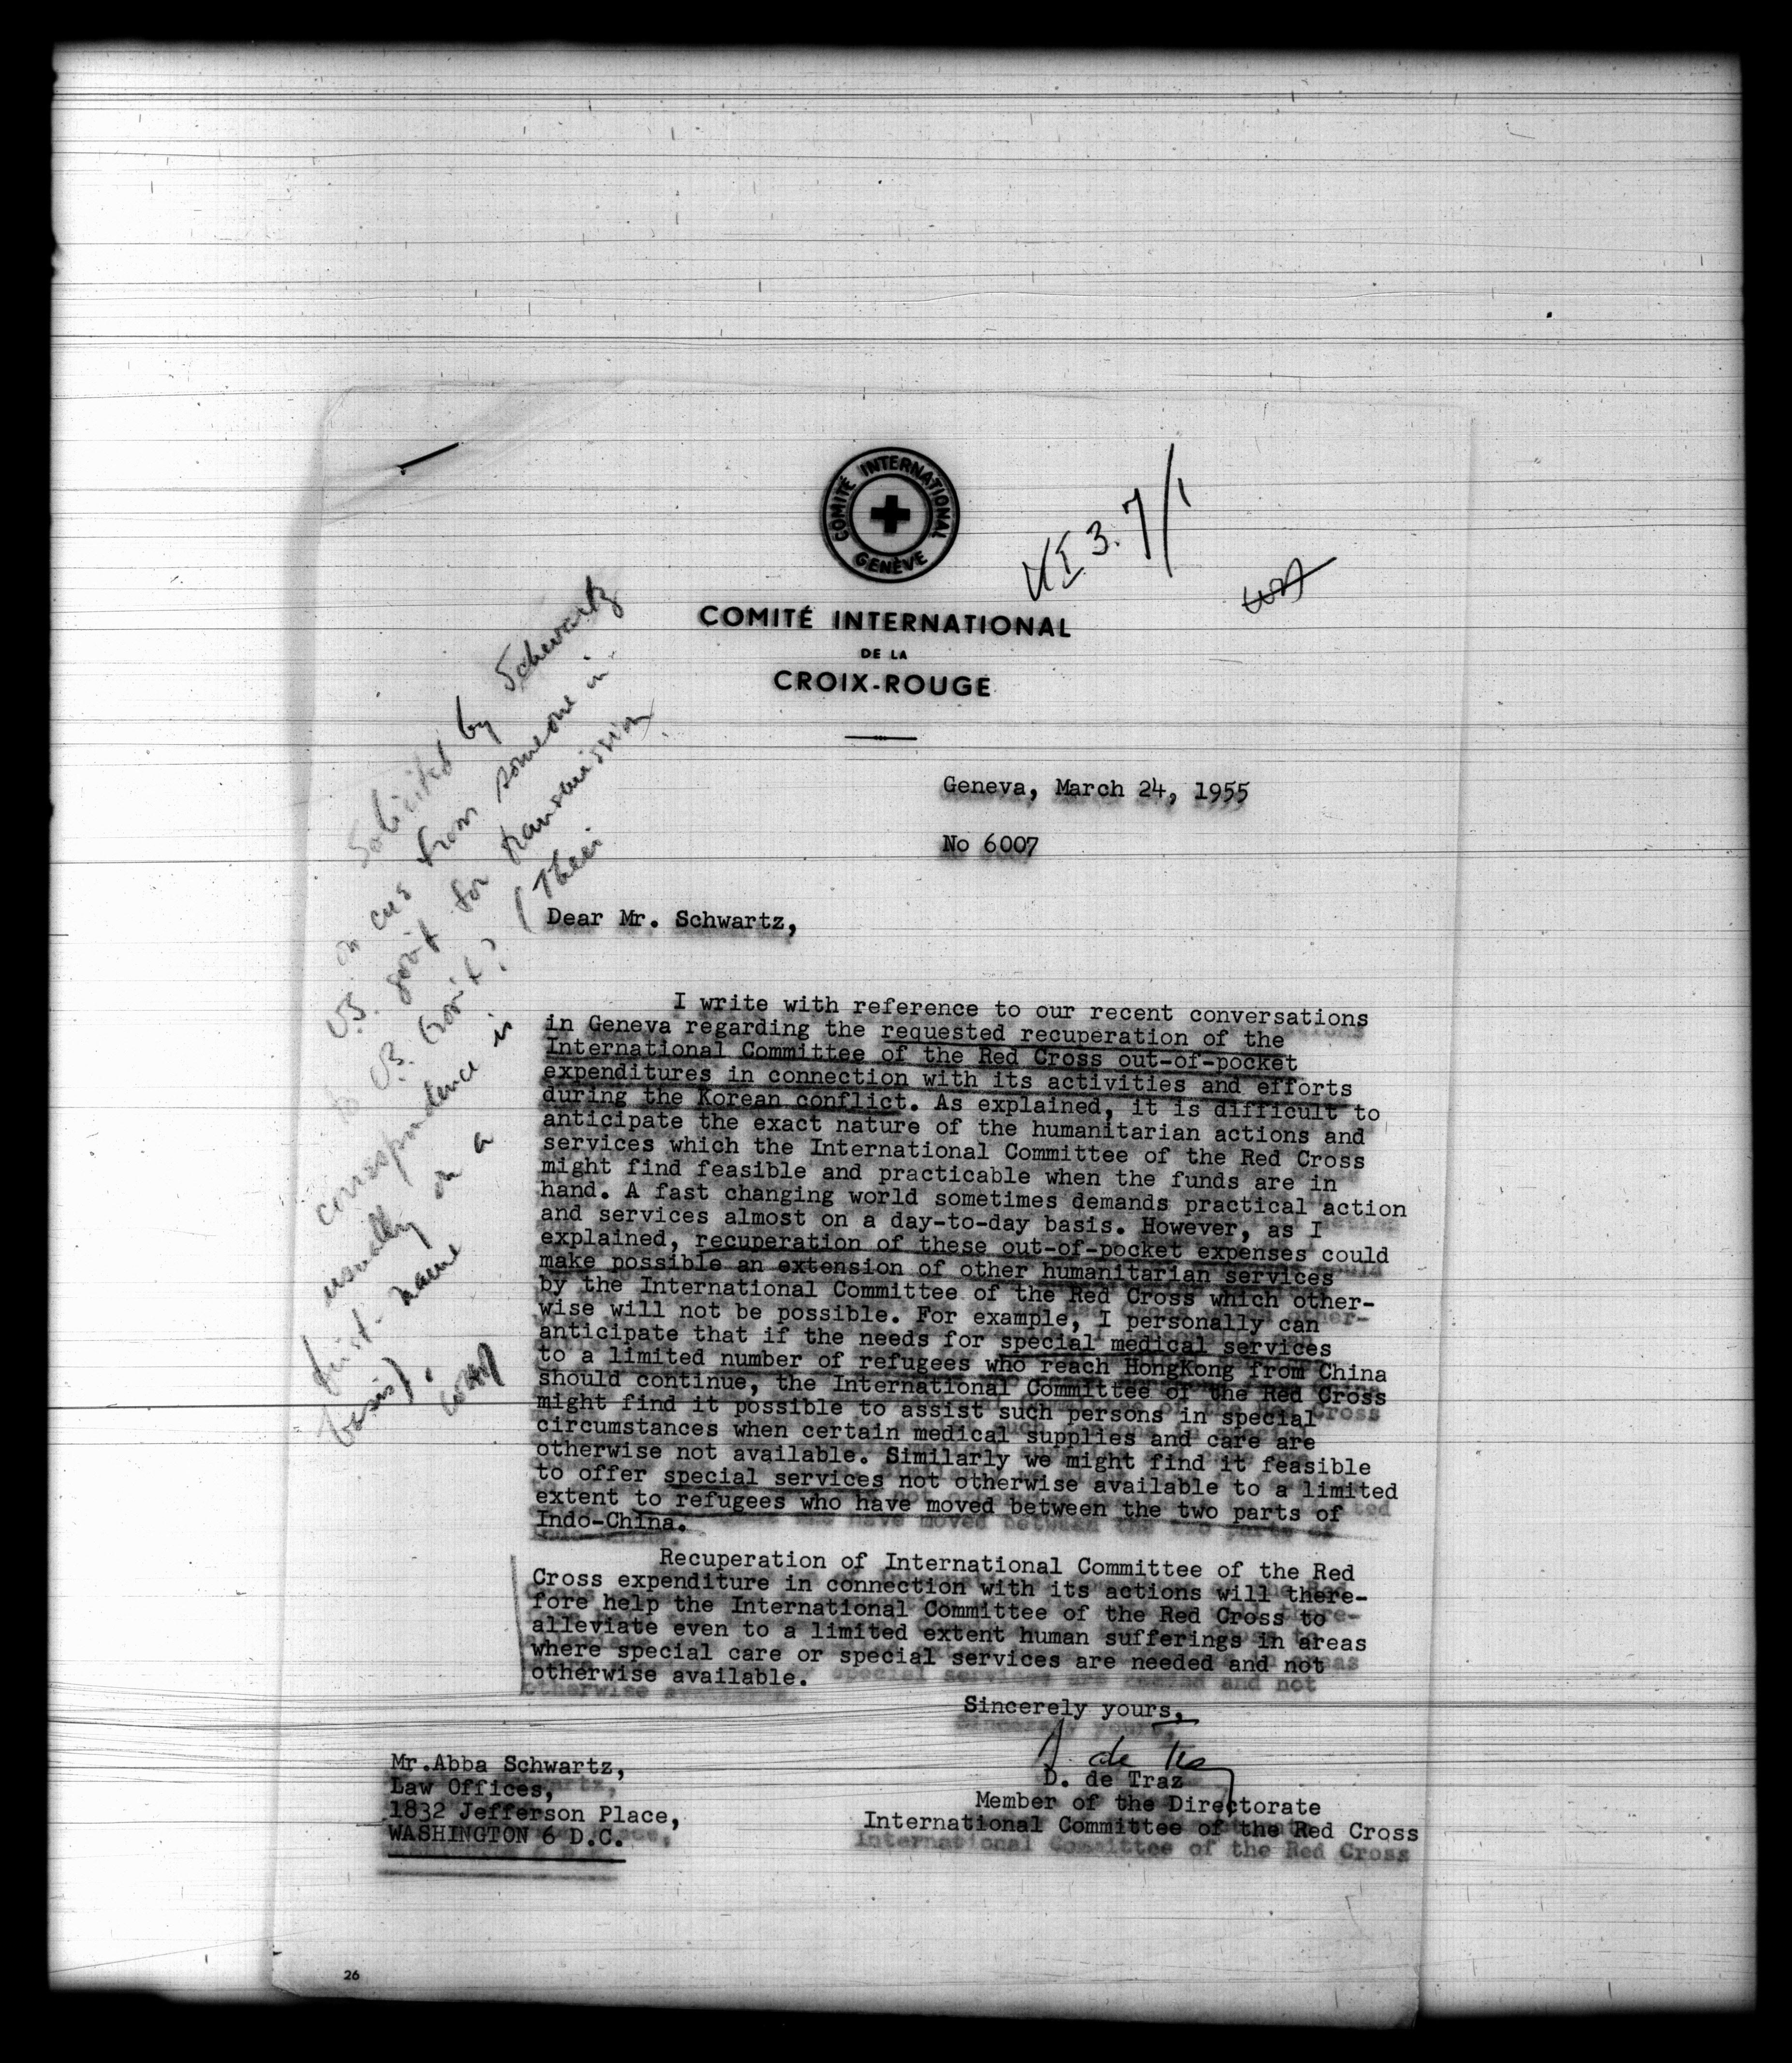 COMITÉ INTERNATIONAL
GENÈVE
COMITÉ INTERNATIONAL
DE LA
CROIX-ROUGE
Geneva, March 24, 1955
No 6007
Solicited by Schwartz
or
from someone in
U.S. gov't for transmission
to U.S. Gov't? (Their
correspondence is
usually on a
first-name
basis).
Dear Mr. Schwartz,
I write with reference to our recent conversations
in Geneva regarding the requested recuperation of the
International Committee of the Red Cross out-of-pocket
expenditures in connection with its activities and efforts
during the Korean conflict. As explained, it is difficult to
anticipate the exact nature of the humanitarian actions and
services which the International Committee of the Red Cross
might find feasible and practicable when the funds are in
hand. A fast changing world sometimes demands practical action
and services almost on a day-to-day basis. However, as I
explained, recuperation of these out-of-pocket expenses could
make possible an extension of other humanitarian services
by the International Committee of the Red Cross which other-
wise will not be possible. For example, I personally can
anticipate that if the needs for special medical services
to a limited number of refugees who reach HongKong from China
should continue, the International Committee of the Red Cross
might find it possible to assist such persons in special
circumstances when certain medical supplies and care are
otherwise not available. Similarly we might find it feasible
to offer special services not otherwise available to a limited
extent to refugees who have moved between the two parts of
Indo-China.
Recuperation of International Committee of the Red
Cross expenditure in connection with its actions will there-
fore help the International Committee of the Red Cross to
alleviate even to a limited extent human sufferings in areas
where special care or special services are needed and not
otherwise available.
Sincerely yours,
D. de Traz
Member of the Directorate
International Committee of the Red Cross
Mr.Abba Schwartz,
Law Offices,
1832 Jefferson Place,
WASHINGTON 6 D.C.
26